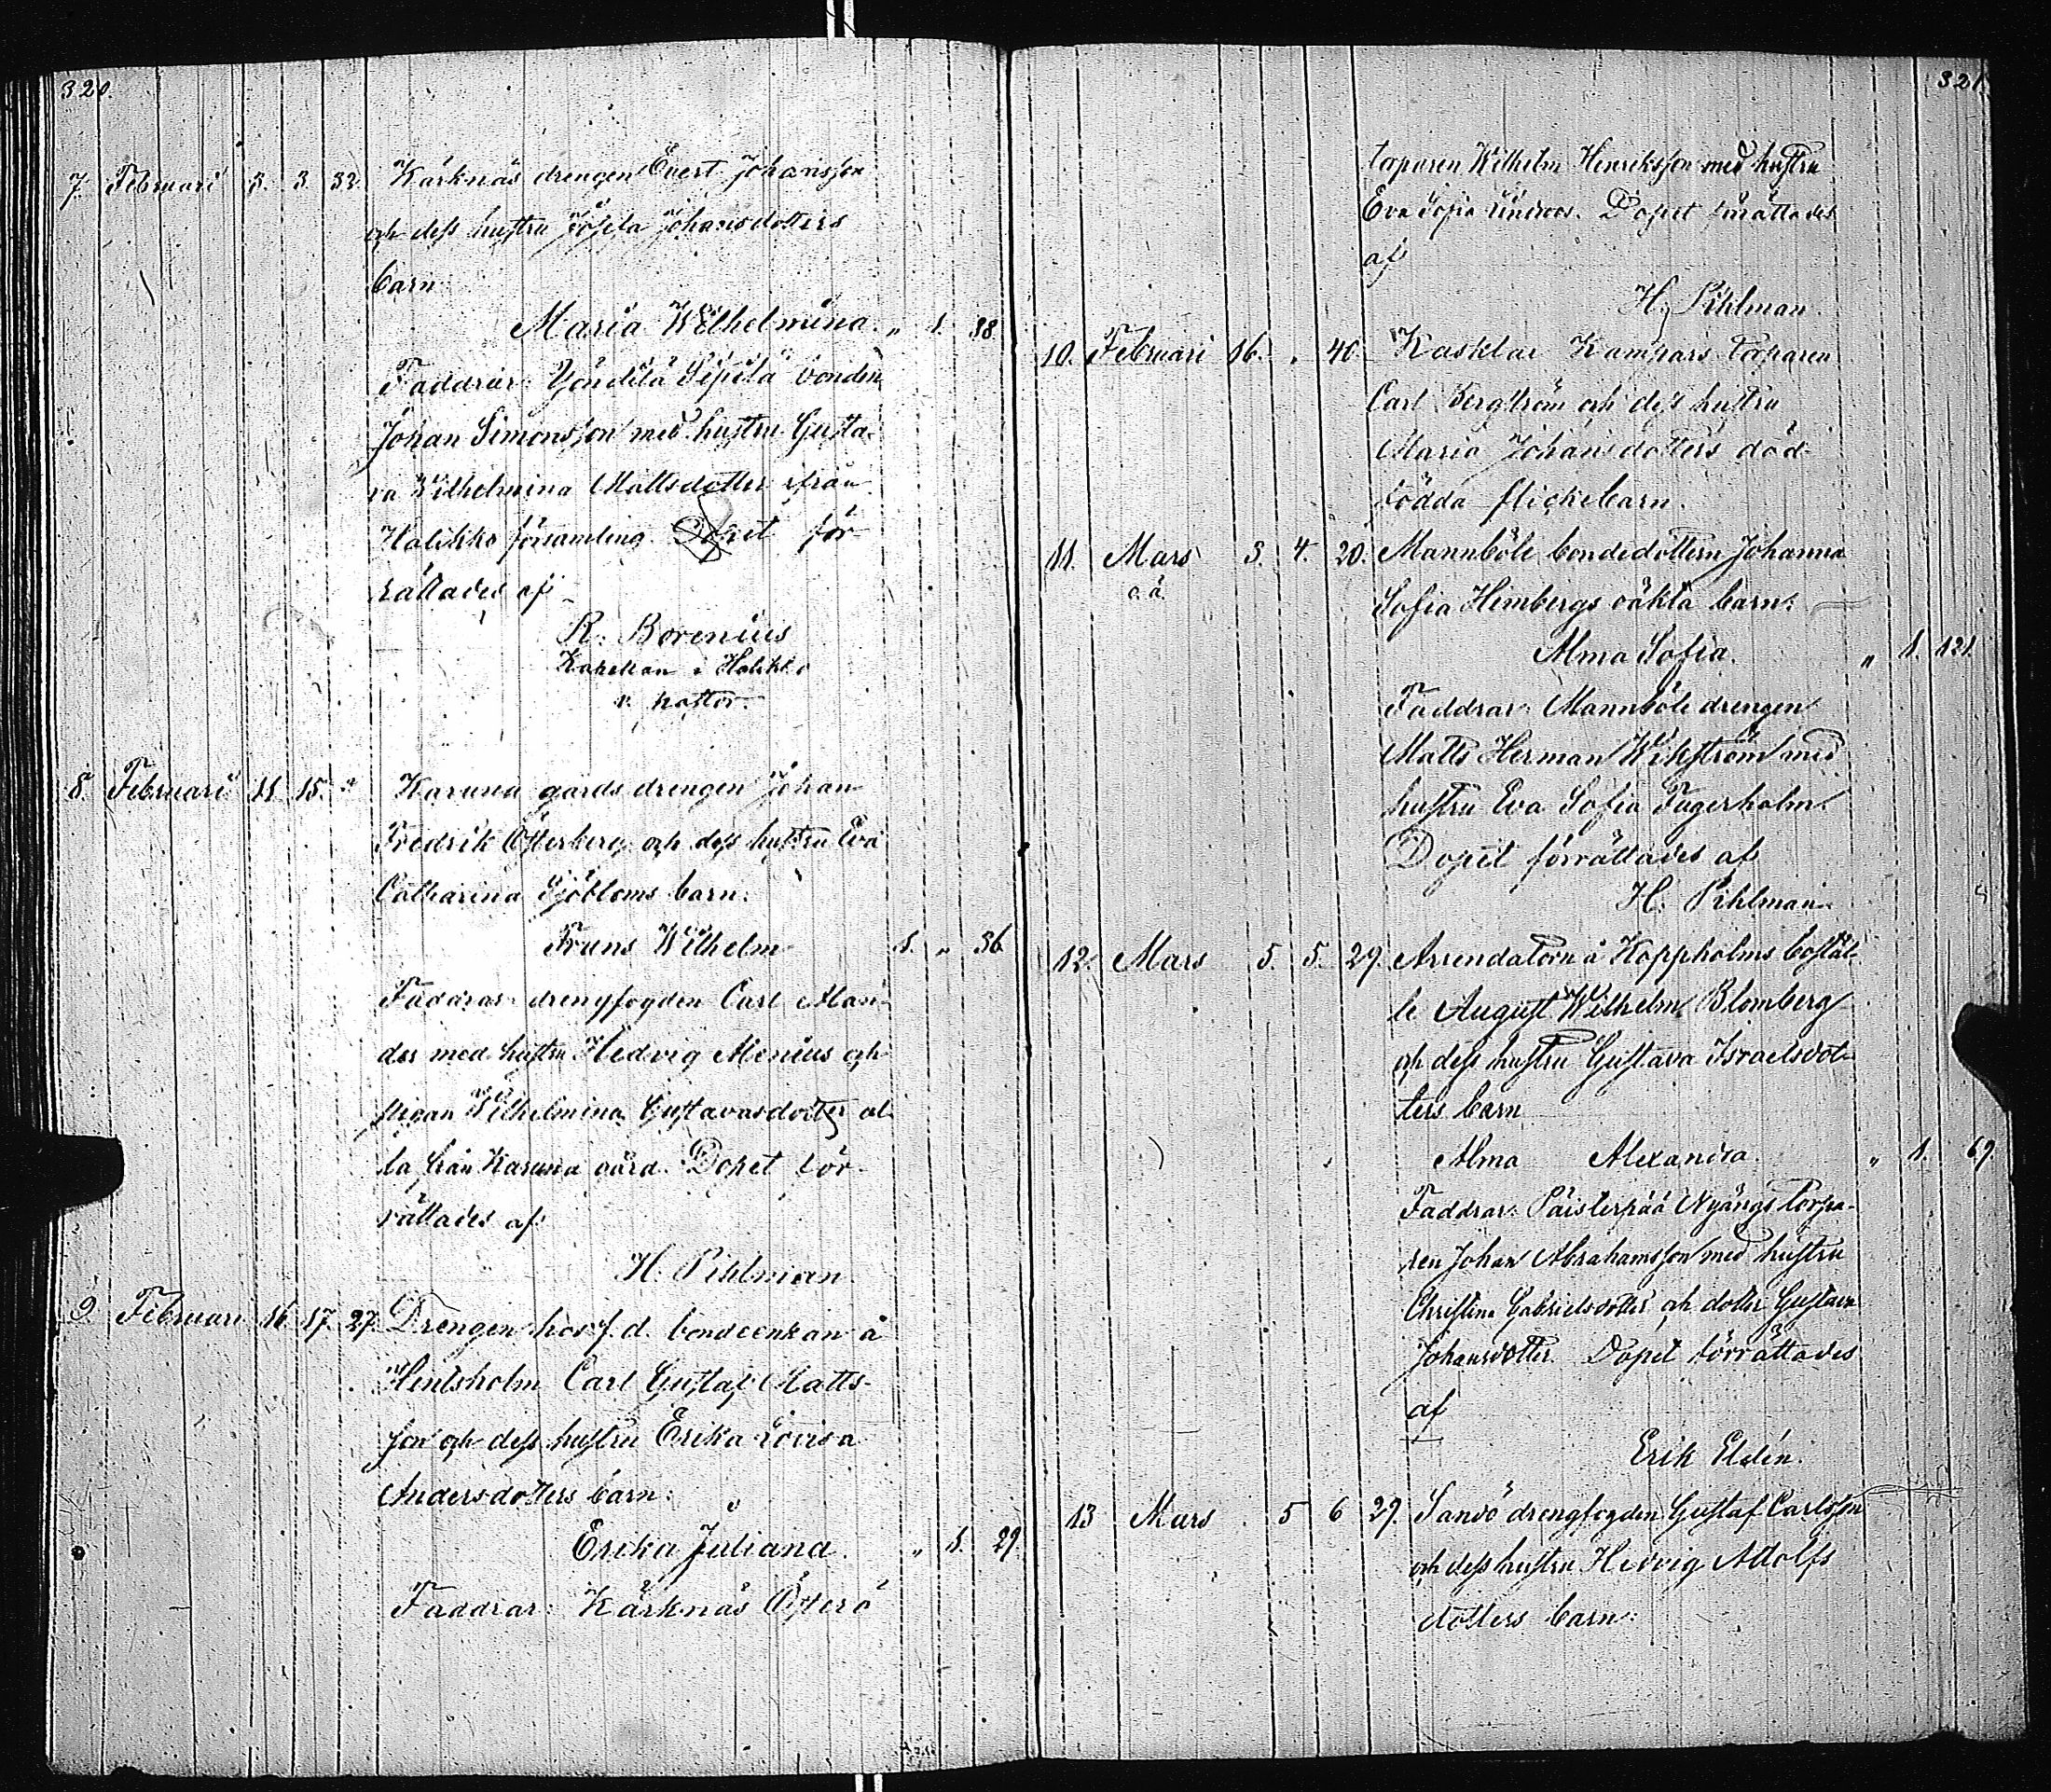 320.
7. Februari 3. 3. 33. Kärknäs drengen Evert Johansson
och dess hustru Josefa Johansdotters
barn
Maria Wilhelmina. " 1. 38
Faddrar: Yöndilä Sipilä bonden
Johan Simonsson med hustru Gusta-
va Wilhelmina Mattsdotter ifrån
Halikko församling. Dopet för-
rättades af
R. Borenius
Kapellan i Halikko
v. pastor.
8. Februari 11 15. Karuna gårds drengen Johan
Fredrik Österberg och dess hustru Eva
Catharina Sjöbloms barn:
Frans Wilhelm 1. " 36
Faddrar: drengfogden Carl Man-
der med hustru Hedvig Alenius och
pigan Wilhelmina Gustavasdotter al-
la från Karuna gård. Dopet för-
rättades af
H. Pihlman
9. Februari 16 17. 27. Drengen hos f. d. bondeenkan å
Hintsholm Carl Gustaf Matts-
son och dess hustru Erika Lovisa
Andersdotters barn:
Erika Juliana. " 1. 29
Faddrar: Kärknäs Österö
321.
torparen Wilhelm Henriksson med hustru
Eva Sofia Lindroos. Dopet förrättades
af
H. Pihlman.
10. Februari 16. " 40 Kasklax Kampars torparen
Carl Bergström och dess hustru
Maria Johansdotters död-
födda flickebarn.
11. Mars 3. 4. 20. Mannböle bondedottern Johanna
o. ä. Sofia Himbergs oäkta barn:
Alma Sofia. " 1. 121
Faddrar: Mannböle drengen
Matts Herman Wikström med
hustru Eva Sofia Fagerholm.
Dopet förrättades af
H. Pihlman.
12. Mars 5. 5. 29. Arrendatorn å Koppholms bostäl-
le August Wilhelm Blomberg
och dess hustru Gustava Israelsdot-
ters barn
Alma Alexandra. " 1. 69
Faddrar: Päisterpää Nyängs torpa-
ren Johan Abrahamsson med hustru
Christina Gabrielsdotter och dotter Gustava
Johansdotter. Dopet förrättades
af
Erik Eldén.
13 Mars 5 6 29. Sandö drengfogden Gustaf Carlsson
och dess hustru Hedvig Adolfs
dotters barn: